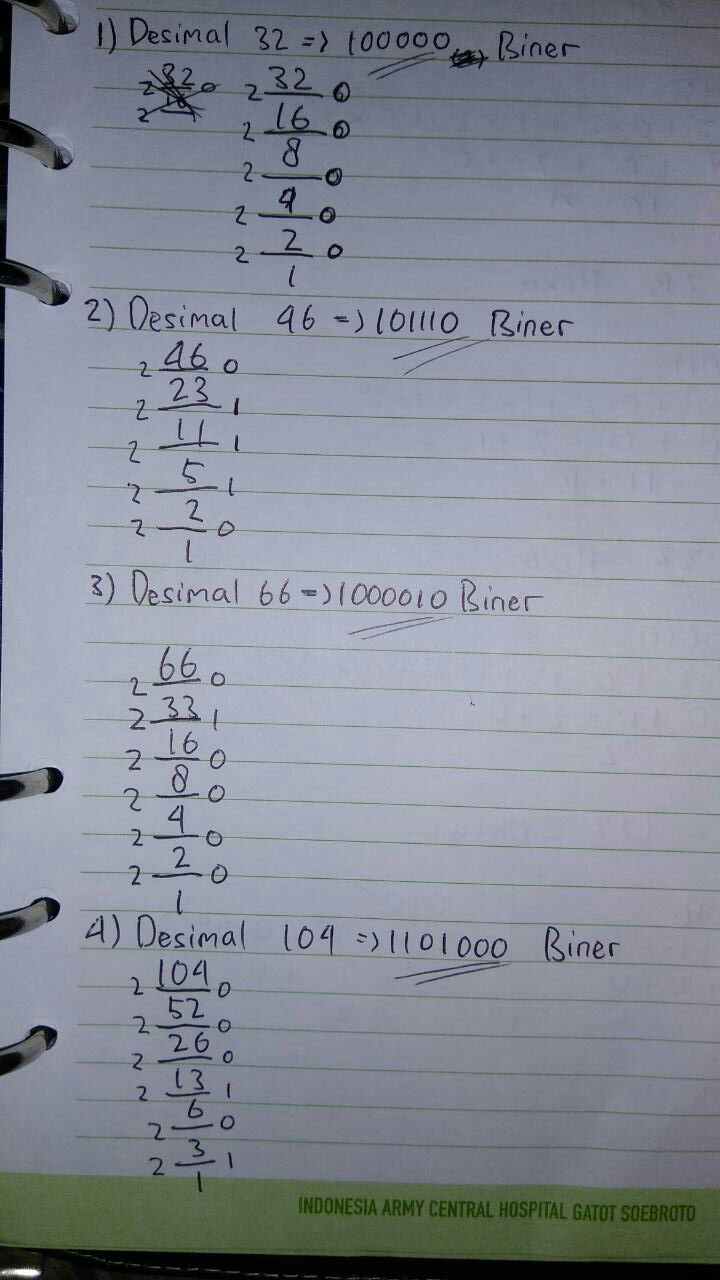 1) Desimal 32 => 100000 Biner
2 32 0
2 16 0
2 8 0
2 4 0
2 2 0
1
2) Desimal 46 => 101110 Biner
2 46 0
2 23 1
2 11 1
2 5 1
2 2 0
1
3) Desimal 66 => 1000010 Biner
2 66 0
2 33 1
2 16 0
2 8 0
2 4 0
2 2 0
1
4) Desimal 104 => 1101000 Biner
2 104 0
2 52 0
2 26 0
2 13 1
2 6 0
2 3 1
1
INDONESIA ARMY CENTRAL HOSPITAL GATOT SOEBROTO